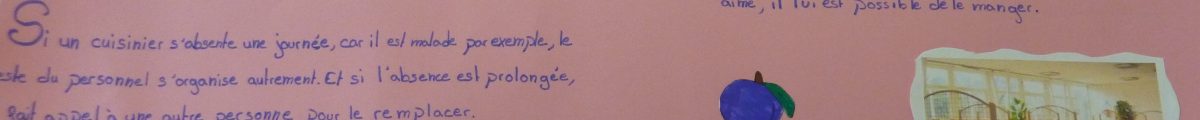 Si un cuisinier s'absente une journée, car il est malade par exemple, le
este du personnel s'organise autrement. Et si l'absence est prolongée,
fait appel à une autre personne pour le remplacer.
aime, il lui est possible de le manger.